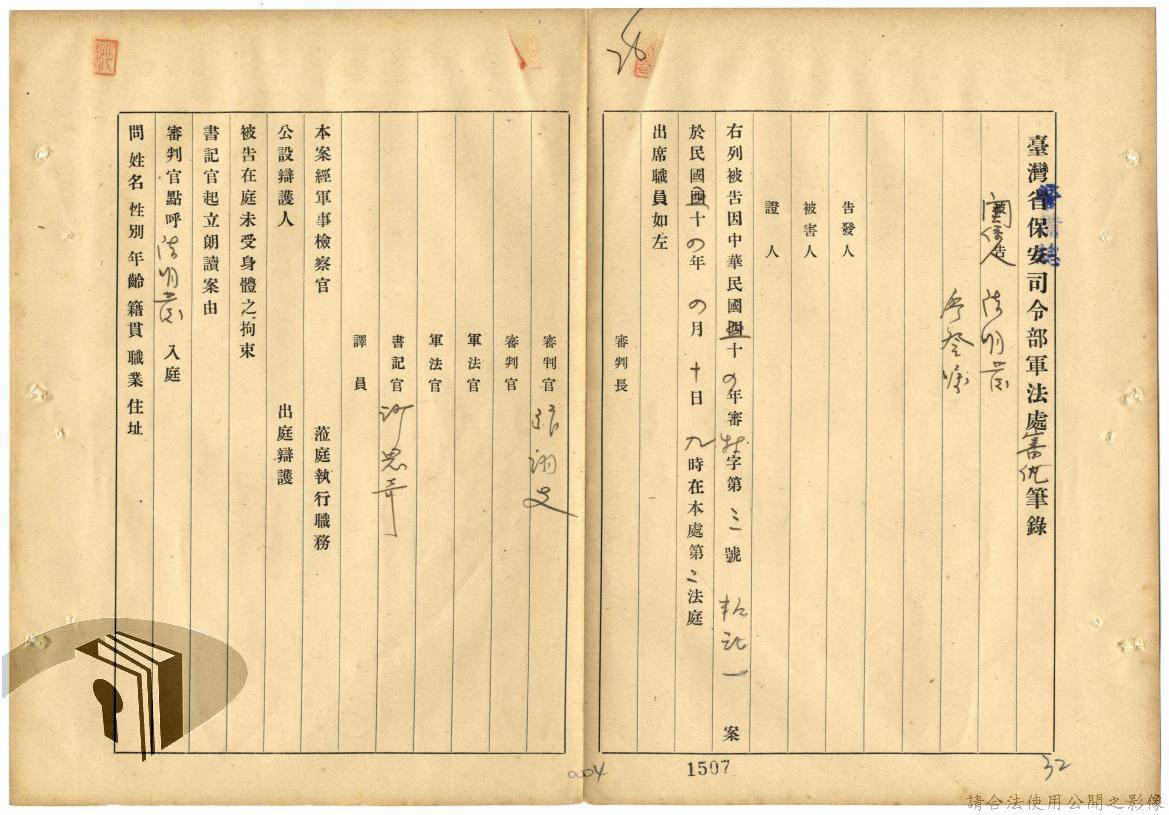 臺灣省保安司令部軍法處審訊筆錄
警備總
關係人
被告
洪明
告發人
被害人
證人
右列被告因中華民國四十 年審 字第三號 一案
於民國四十 年 月十日九時在本處第二法庭
出席職員如左
審判長
審判官 張翊
審判官
軍法官
軍法官
書記官 許思奇
譯員
本案經軍事檢察官 蒞庭執行職務
公設辯護人 出庭辯護
被告在庭未受身體之拘束
書記官起立朗讀案由
審判官點呼洪明 入庭
問 姓名 性別 年齡 籍貫 職業 住址
1507
0004
32
請合法使用公開之影像